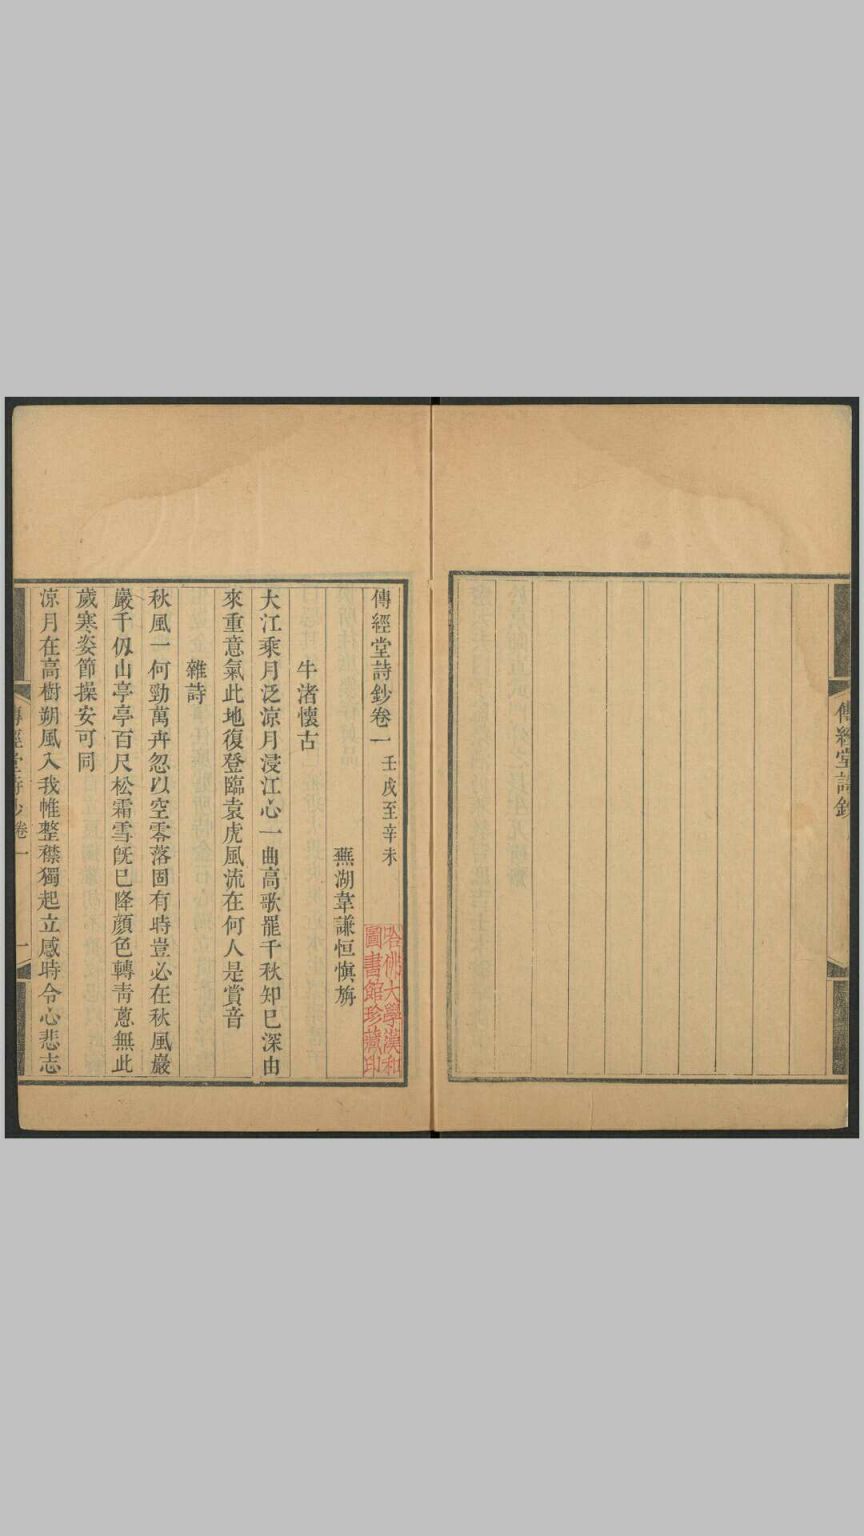 傳經堂詩鈔
傳經堂詩鈔卷一 壬戌至辛未
哈佛大學漢和
圖書館珍藏印
蕪湖韋謙恒慎旃
牛渚懷古
大江乘月泛涼月浸江心一曲高歌罷千秋知已深由
來重意氣此地復登臨袁虎風流在何人是賞音
雜詩
秋風一何勁萬卉忽以空零落固有時豈必在秋風巖
巖千仭山亭亭百尺松霜雪旣已降顔色轉靑蔥無此
歲寒姿節操安可同
涼月在高樹朔風入我帷整襟獨起立感時令心悲志
傳經堂詩鈔卷一 一